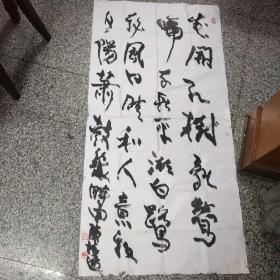 花開紅樹亂鶯
啼草長平湖白鷺
飛風日晴和人意好
夕陽簫鼓幾船歸